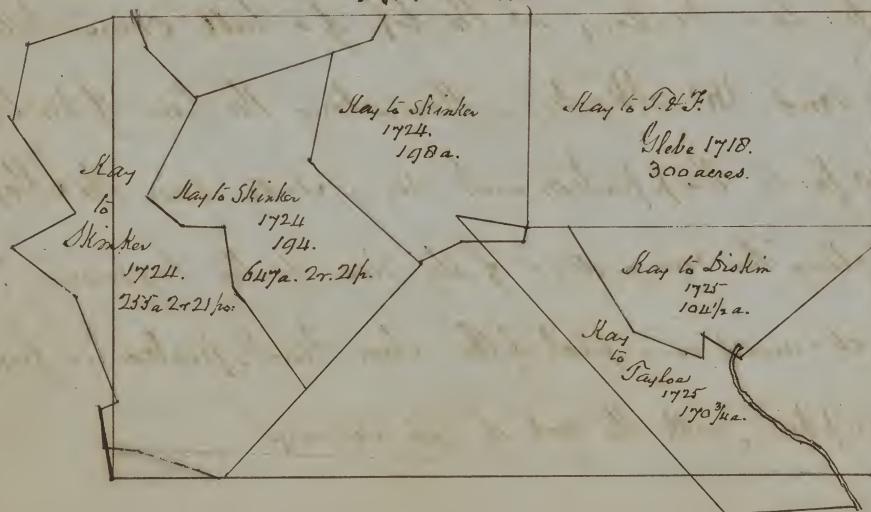 Kay
to
Skinker
1724.
255a 2r 21po.
Kay to Skinker
1724
194.
647a. 2r. 21p.
Kay to Skinker
1724.
198a.
Kay to T. & F.
Glebe 1718.
300 acres.
Kay to Diskin
1725
104 1/2 a.
Kay
to
Tayloe
1725
170 3/4 a.